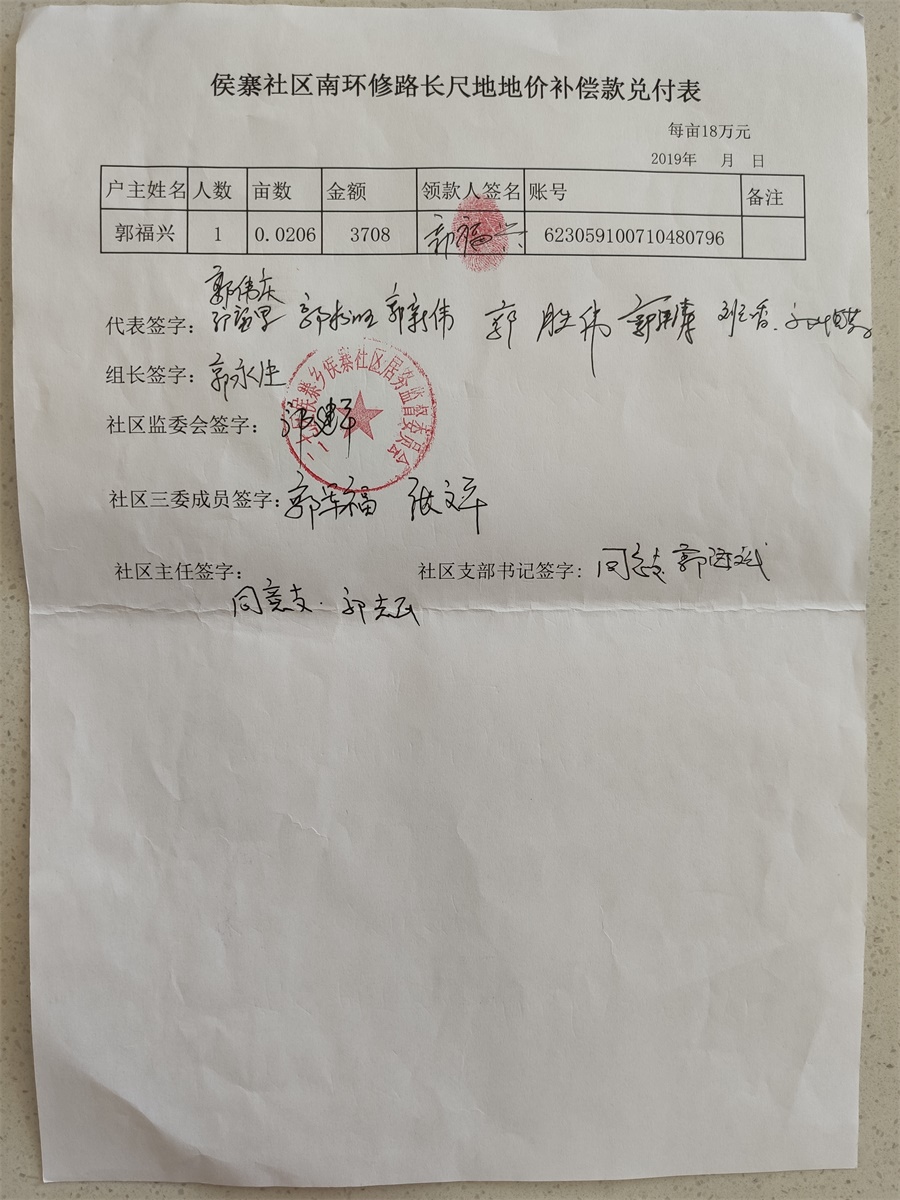 侯寨社区南环修路长尺地地价补偿款兑付表
每亩18万元
2019年 月 日
户主姓名 人数 亩数 金额 领款人签名 账号 备注
郭福兴 1 0.0206 3708 郭福兴 623059100710480796
郭伟庆
代表签字： 郭新伟 郭胜伟
组长签字： 郭永生
侯寨乡侯寨社区居务监督委员会
社区监委会签字：
社区三委成员签字： 郭军福 张文平
社区主任签字： 社区支部书记签字： 同意支
同意支. 郭志民